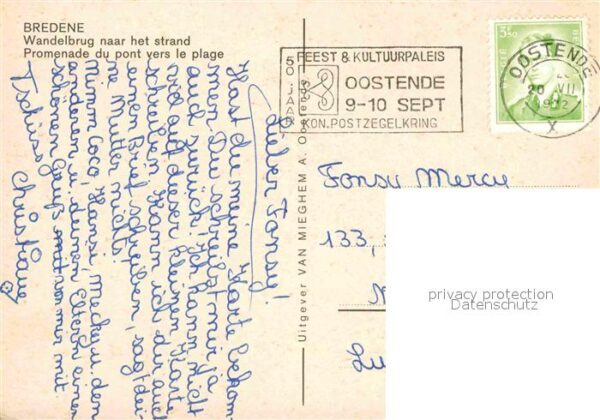 BREDENE
Wandelbrug naar het strand
Promenade du pont vers le plage
50 JAAR
FEEST & KULTUURPALEIS
OOSTENDE
9-10 SEPT
KON. POSTZEGELKRING
OOSTENDE
20 VII
X
3,50
Uitgever VAN MIEGHEM A. Oostende
Lieber Fonsy!
Hast du meine Karte bekom-
men. Du schreibst mir ja
auch zurück. Ich kann nicht
viel auf dieser kleinen Karte
schreiben. Kann ich dir auch
einen Brief schreiben, sag dei-
ner Mutter nichts!
Mimm Coco, Hansi, Mecky u. den
anderen u. deinen Eltern einen
schönen Gruß mit von mir mit.
Tschüss
Christiane
Fonsy Mercy
133,
Lu
privacy protection
Datenschutz